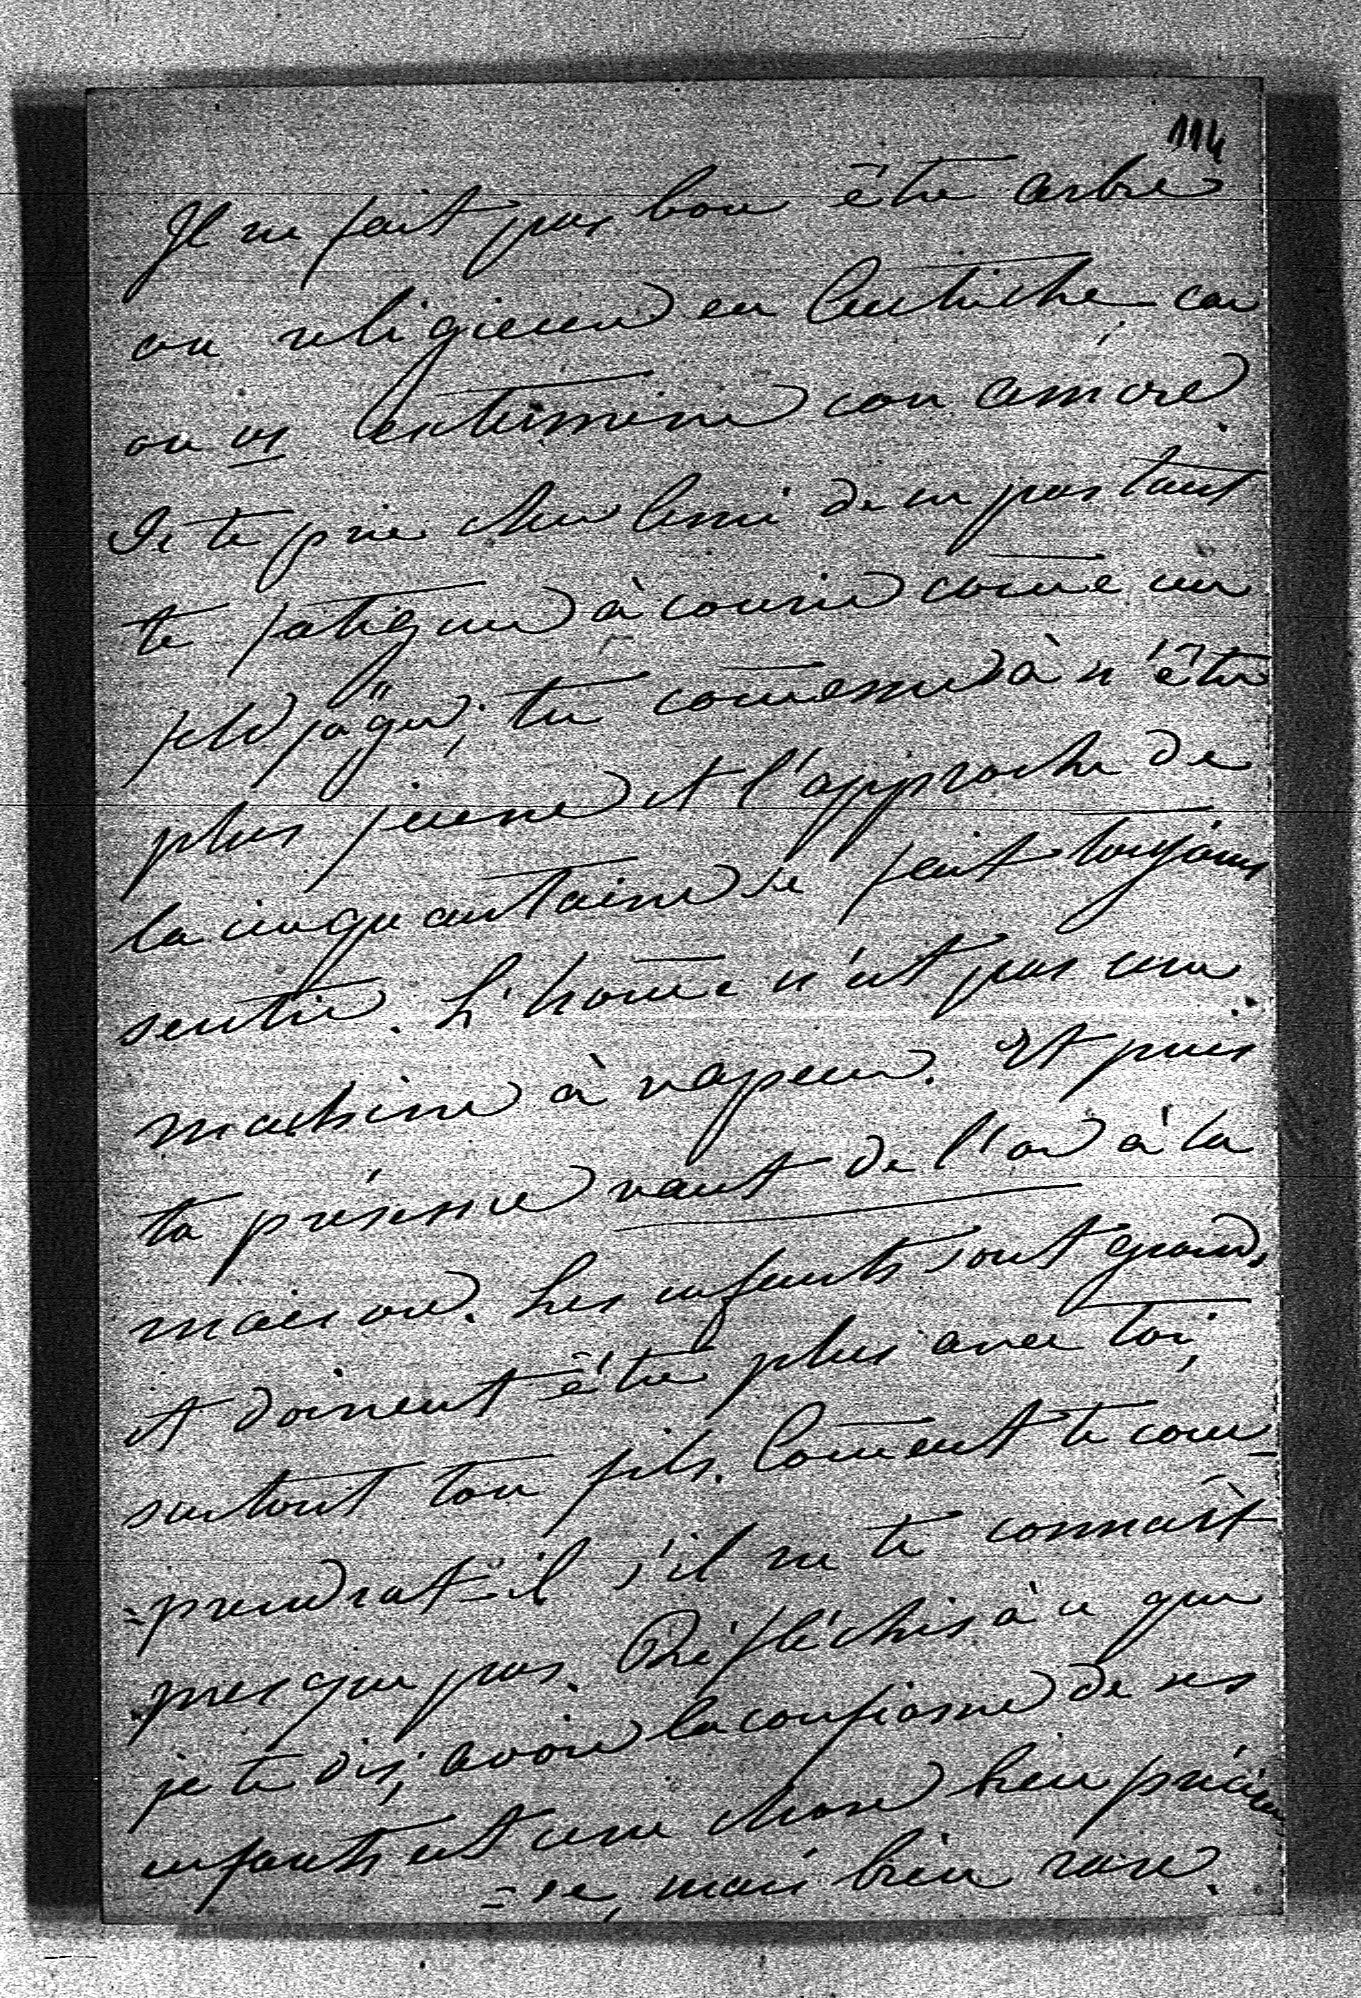 114
Il ne fait pas bon être arbre
ou religieux en Autriche, car
on les extermine con amore.
Je te prie cher Ami de ne pas tant
te fatiguer à courir come un
feldjäger; tu comences à n'être
plus jeune et l'approche de
la cinquantaine se fait toujours
sentir. L'home n'est pas une
machine à vapeur. Et puis
ta présence vaut de l'or à la
maison. Les enfants sont grands
et doivent être plus avec toi,
surtout ton fils. Coment te com-
=prendrat-il s'il ne te connaît
presque pas. Réfléchis à ce que
je te dis; avoir la confiance de ses
enfants est une chose bien précieu
=se, mais bien rare.